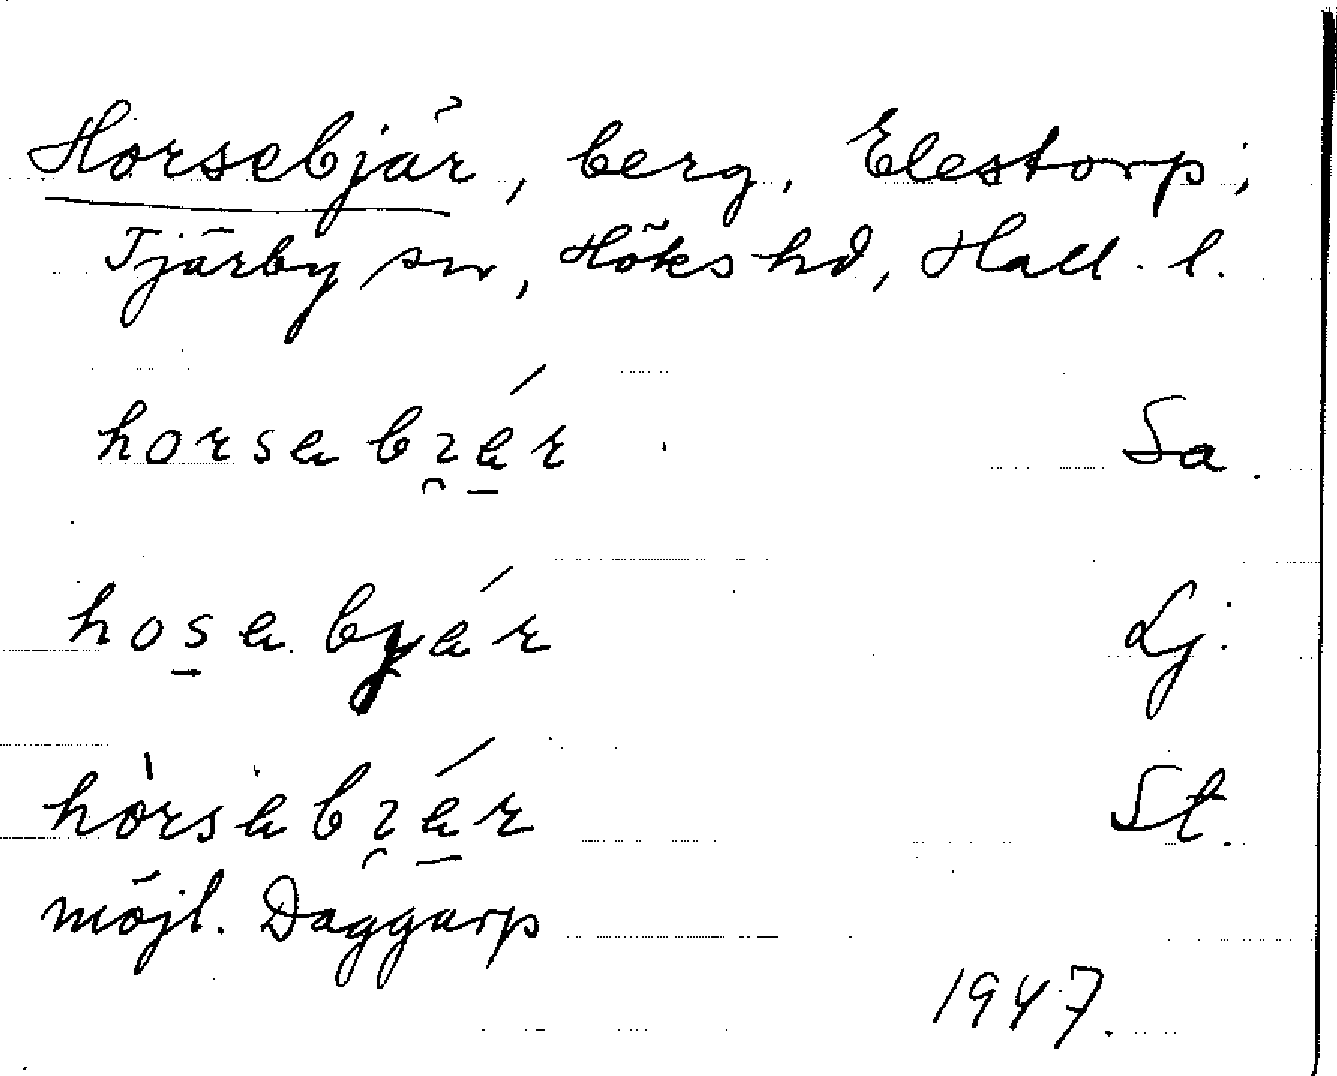 Horsebjär, berg, Elestorp;
Tjärby sn, Höks hd, Hall. l.
horsabɪ̯á̱r Sa.
hos̱abɪ̯ár Lj.
hòrsabɪ̯á̱r St.
möjl. Daggarp
1947.